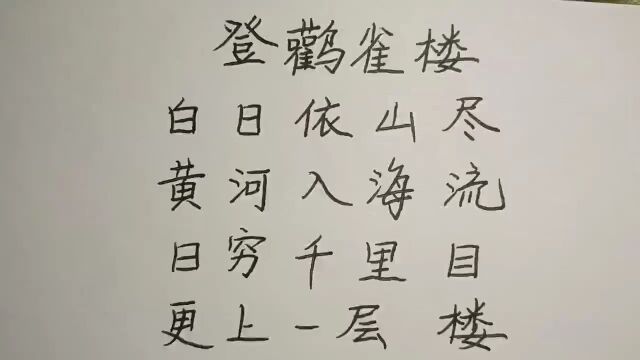 登鹳雀楼
白日依山尽
黄河入海流
日穷千里目
更上一层楼